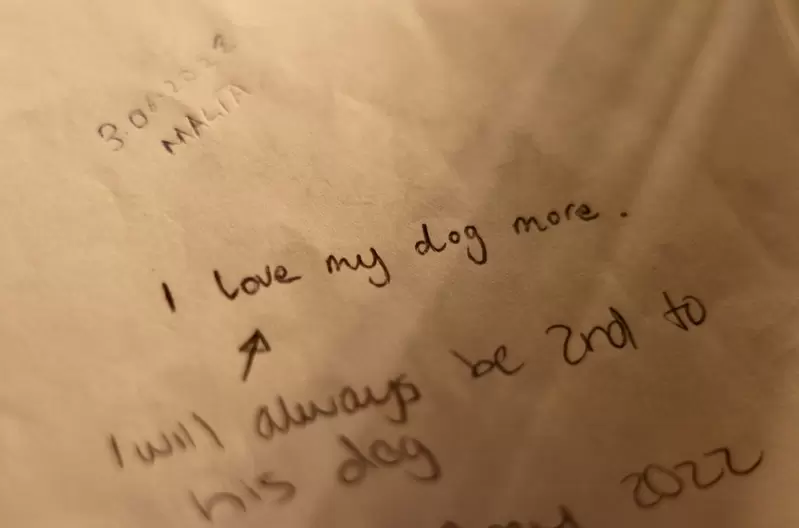 MALIA
I love my dog more.
I will always be 2nd to
his dog
2022